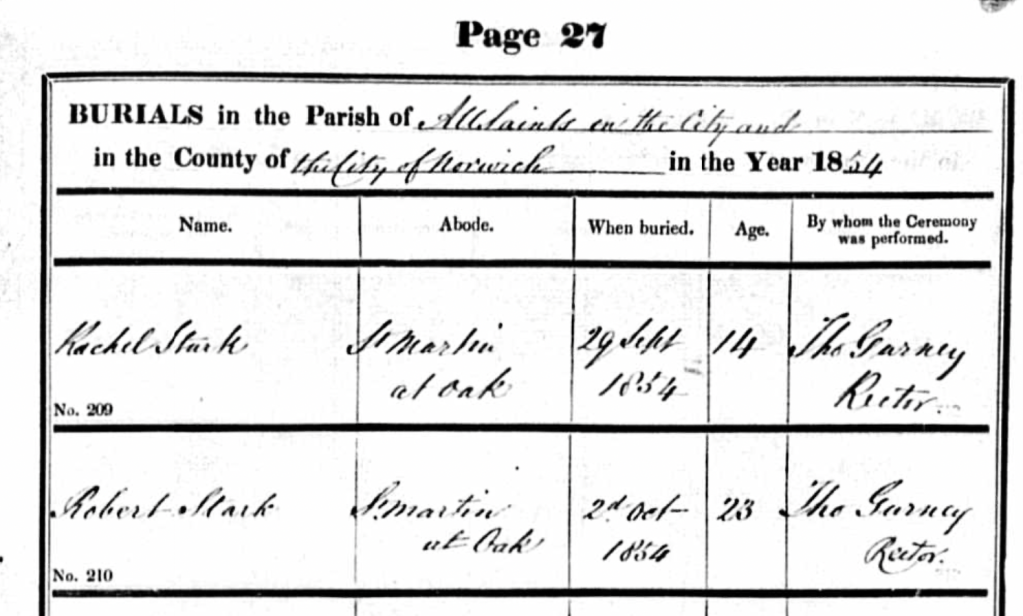 Page 27
BURIALS in the Parish of All Saints in the City and
in the County of the City of Norwich in the Year 1854
Name. Abode. When buried. Age. By whom the Ceremony
was performed.
Rachel Stark St Martin 29 Sept 14 Tho Gurney
at Oak 1854 Rector.
No. 209
Robert Stark St. Martin 2d Oct 23 Tho Gurney
at Oak 1854 Rector.
No. 210